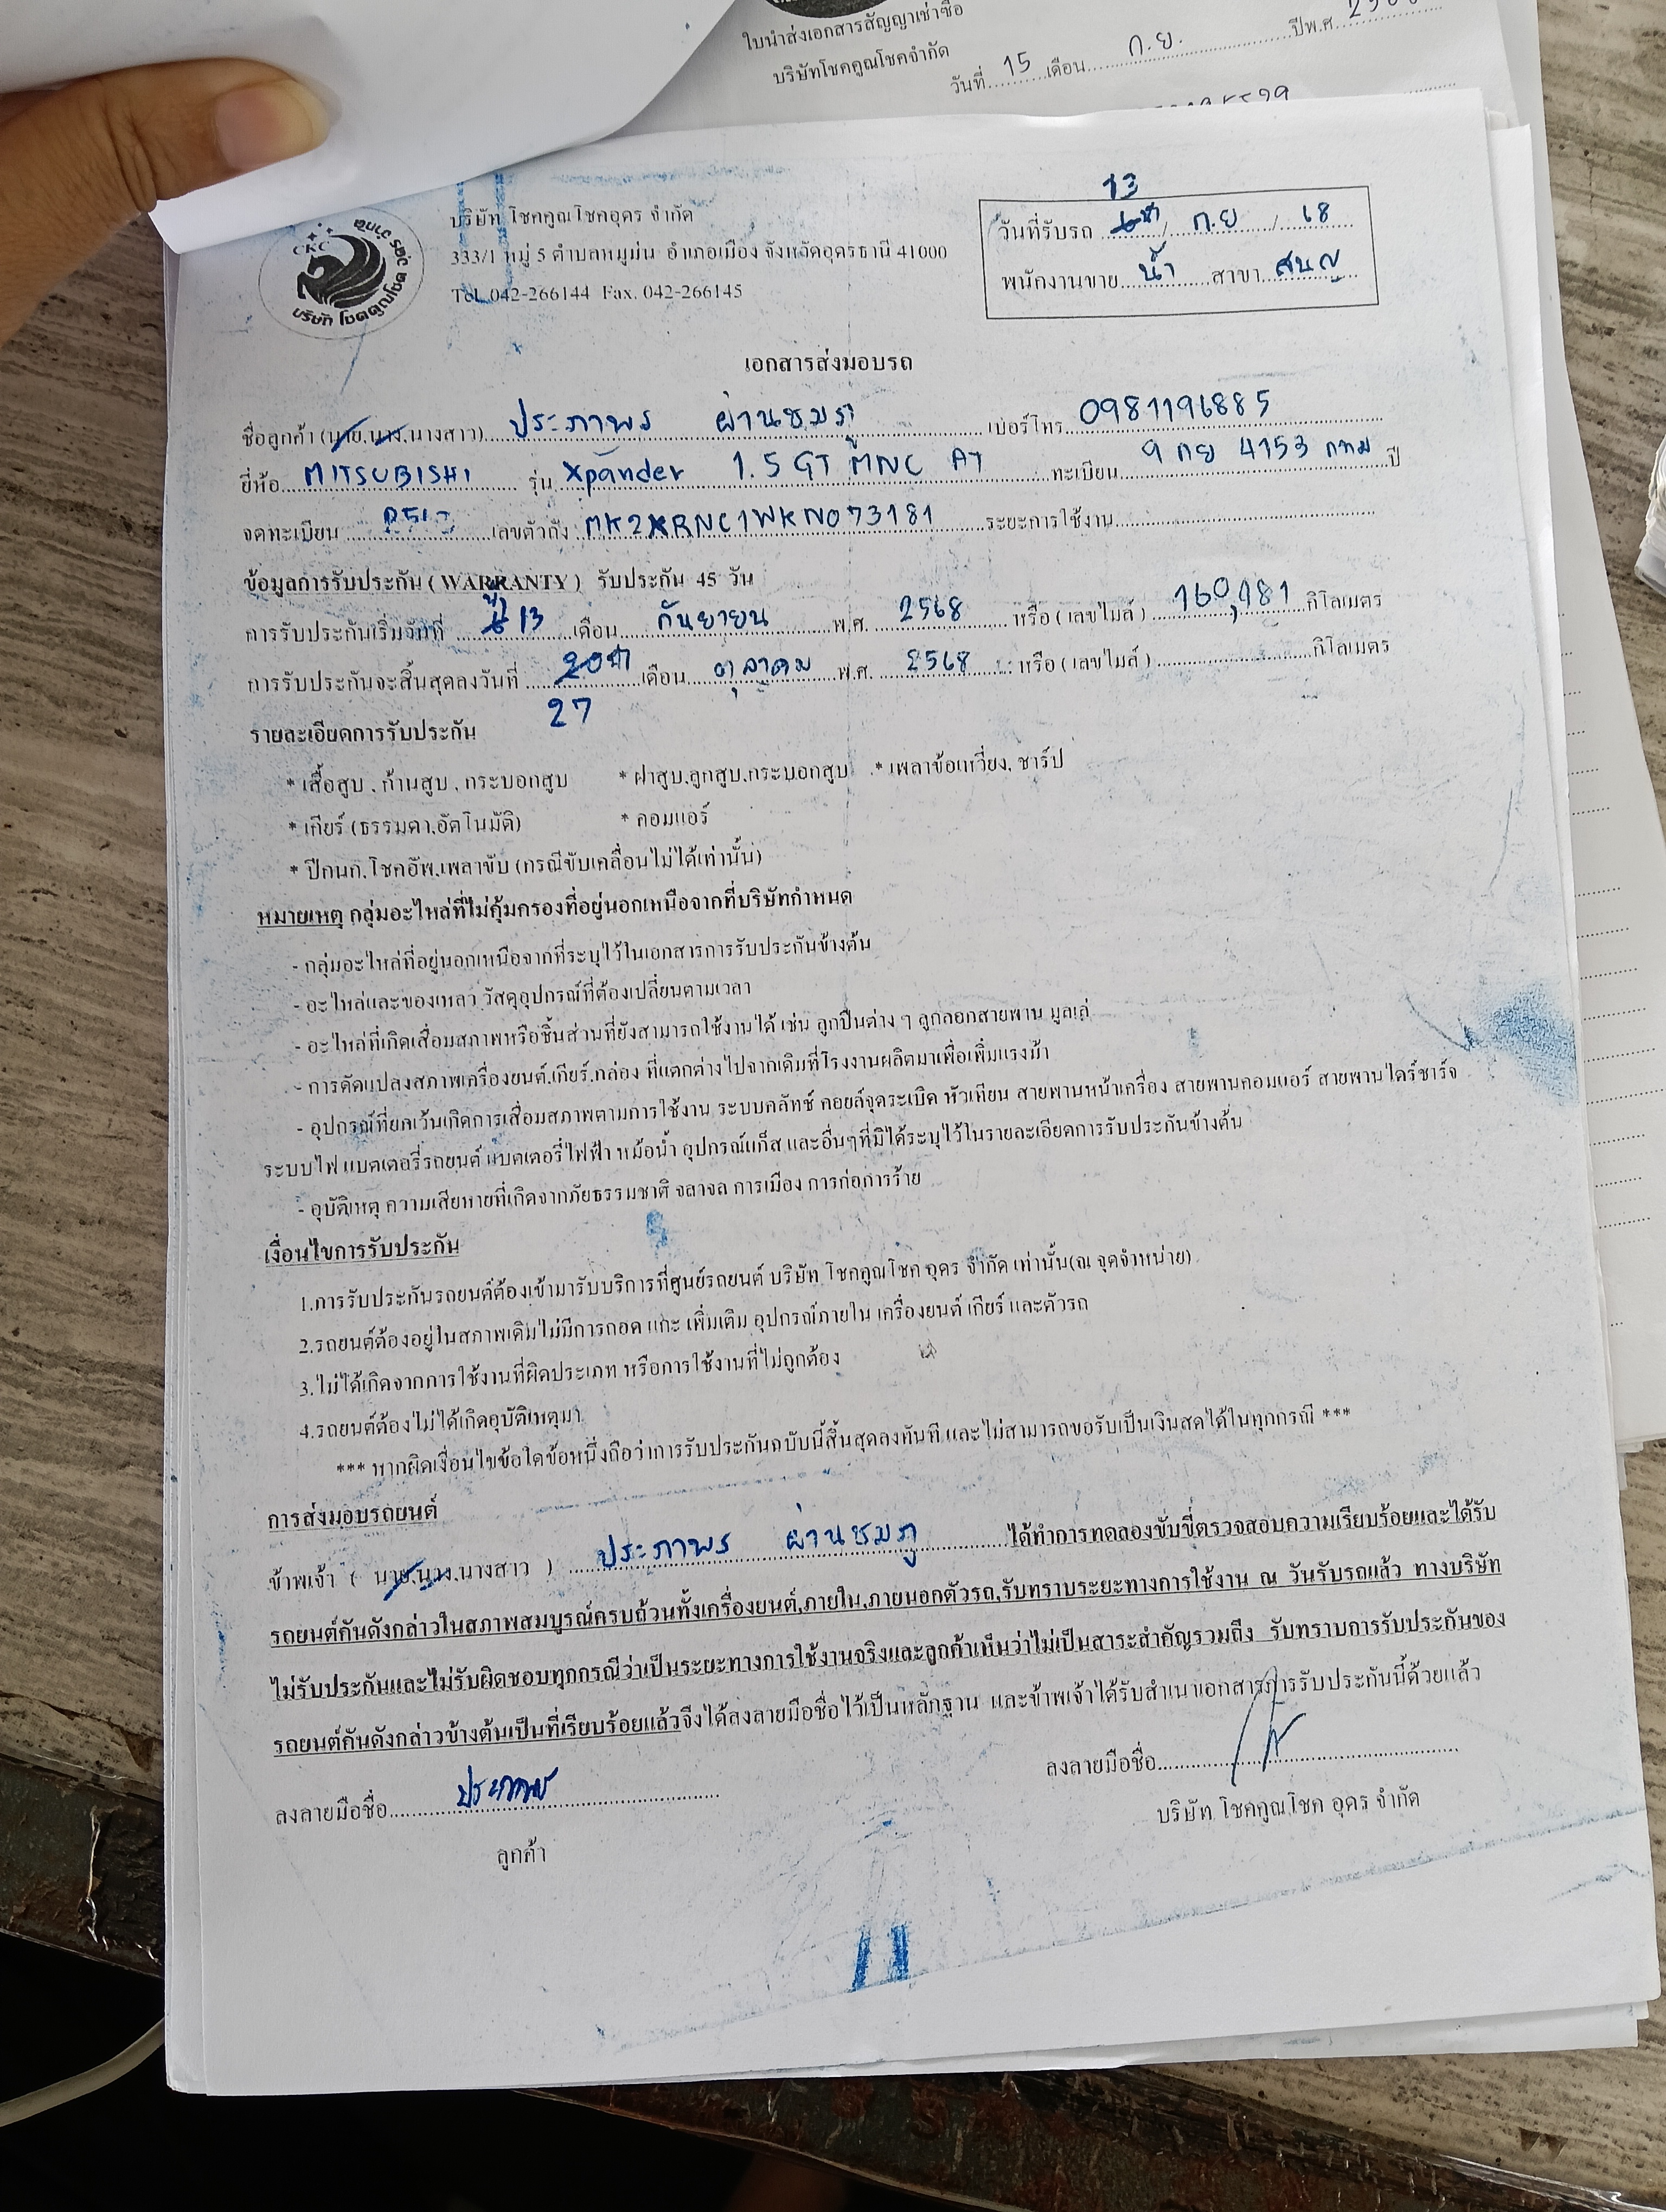 ใบนำส่งเอกสารสัญญาเช่าซื้อ
บริษัทโชคคูณโชคจำกัด
วันที่ 15 เดือน ก.ย. ปีพ.ศ.
CKC
บริษัท โชคคูณโชค อุดร จำกัด
บริษัท โชคคูณโชคอุดร จำกัด
333/1 หมู่ 5 ตำบลหมูม่น อำเภอเมือง จังหวัดอุดรธานี 41000
Tel. 042-266144 Fax. 042-266145
13
วันที่รับรถ / ก.ย / 68
พนักงานขาย น้ำ สาขา
เอกสารส่งมอบรถ
ชื่อลูกค้า (นาย,นาง,นางสาว) ประภาพร ผ่านชมภู เบอร์โทร 0981196885
ยี่ห้อ MITSUBISHI รุ่น Xpander 1.5 GT MNC AT ทะเบียน 9 กย 4153 กทม ปี
จดทะเบียน เลขตัวถัง MK2XRNC1WKN073181 ระยะการใช้งาน
ข้อมูลการรับประกัน ( WARRANTY ) รับประกัน 45 วัน
การรับประกันเริ่มวันที่ 13 เดือน กันยายน พ.ศ. 2568 หรือ ( เลขไมล์ ) 160,181 กิโลเมตร
การรับประกันจะสิ้นสุดลงวันที่ เดือน ตุลาคม พ.ศ. 2568 หรือ ( เลขไมล์ ) กิโลเมตร
27
รายละเอียดการรับประกัน
* เสื้อสูบ , ก้านสูบ , กระบอกสูบ * ฝาสูบ,ลูกสูบ,กระบอกสูบ * เพลาข้อเหวี่ยง, ชาร์ป
* เกียร์ (ธรรมดา,อัตโนมัติ) * คอมแอร์
* ปีกนก,โชคอัพ,เพลาขับ (กรณีขับเคลื่อนไม่ได้เท่านั้น)
หมายเหตุ กลุ่มอะไหล่ที่ไม่คุ้มครองที่อยู่นอกเหนือจากที่บริษัทกำหนด
- กลุ่มอะไหล่ที่อยู่นอกเหนือจากที่ระบุไว้ในเอกสารการรับประกันข้างต้น
- อะไหล่และของเหลว วัสดุอุปกรณ์ที่ต้องเปลี่ยนตามเวลา
- อะไหล่ที่เกิดเสื่อมสภาพหรือชิ้นส่วนที่ยังสามารถใช้งานได้ เช่น ลูกปืนต่าง ๆ ลูกลอกสายพาน มูลเล่
- การดัดแปลงสภาพเครื่องยนต์,เกียร์,กล่อง ที่แตกต่างไปจากเดิมที่โรงงานผลิตมาเพื่อเพิ่มแรงม้า
- อุปกรณ์ที่ยกเว้นเกิดการเสื่อมสภาพตามการใช้งาน ระบบคลัทช์ คอยล์จุดระเบิด หัวเทียน สายพานหน้าเครื่อง สายพานคอมแอร์ สายพานไดร์ชาร์จ
ระบบไฟ แบตเตอรี่รถยนต์ แบตเตอรี่ไฟฟ้า หม้อน้ำ อุปกรณ์แก็ส และอื่นๆที่มิได้ระบุไว้ในรายละเอียดการรับประกันข้างต้น
- อุบัติเหตุ ความเสียหายที่เกิดจากภัยธรรมชาติ จลาจล การเมือง การก่อการร้าย
เงื่อนไขการรับประกัน
1.การรับประกันรถยนต์ต้องเข้ามารับบริการที่ศูนย์รถยนต์ บริษัท โชคคูณโชค อุดร จำกัด เท่านั้น(ณ จุดจำหน่าย)
2.รถยนต์ต้องอยู่ในสภาพเดิมไม่มีการถอด แกะ เพิ่มเติม อุปกรณ์ภายใน เครื่องยนต์ เกียร์ และตัวรถ
3.ไม่ได้เกิดจากการใช้งานที่ผิดประเภท หรือการใช้งานที่ไม่ถูกต้อง
4.รถยนต์ต้องไม่ได้เกิดอุบัติเหตุมา
*** หากผิดเงื่อนไขข้อใดข้อหนึ่งถือว่าการรับประกันฉบับนี้สิ้นสุดลงทันที และไม่สามารถขอรับเป็นเงินสดได้ในทุกกรณี ***
การส่งมอบรถยนต์
ข้าพเจ้า ( นาย,นาง,นางสาว ) ประภาพร ผ่านชมภู ได้ทำการทดลองขับขี่ตรวจสอบความเรียบร้อยและได้รับ
รถยนต์คันดังกล่าวในสภาพสมบูรณ์ครบถ้วนทั้งเครื่องยนต์,ภายใน,ภายนอกตัวรถ,รับทราบระยะทางการใช้งาน ณ วันรับรถแล้ว ทางบริษัท
ไม่รับประกันและไม่รับผิดชอบทุกกรณีว่าเป็นระยะทางการใช้งานจริงและลูกค้าเห็นว่าไม่เป็นสาระสำคัญรวมถึง รับทราบการรับประกันของ
รถยนต์คันดังกล่าวข้างต้นเป็นที่เรียบร้อยแล้วจึงได้ลงลายมือชื่อไว้เป็นหลักฐาน และข้าพเจ้าได้รับสำเนาเอกสารการรับประกันนี้ด้วยแล้ว
ลงลายมือชื่อ ประภาพร ลงลายมือชื่อ
ลูกค้า บริษัท โชคคูณโชค อุดร จำกัด